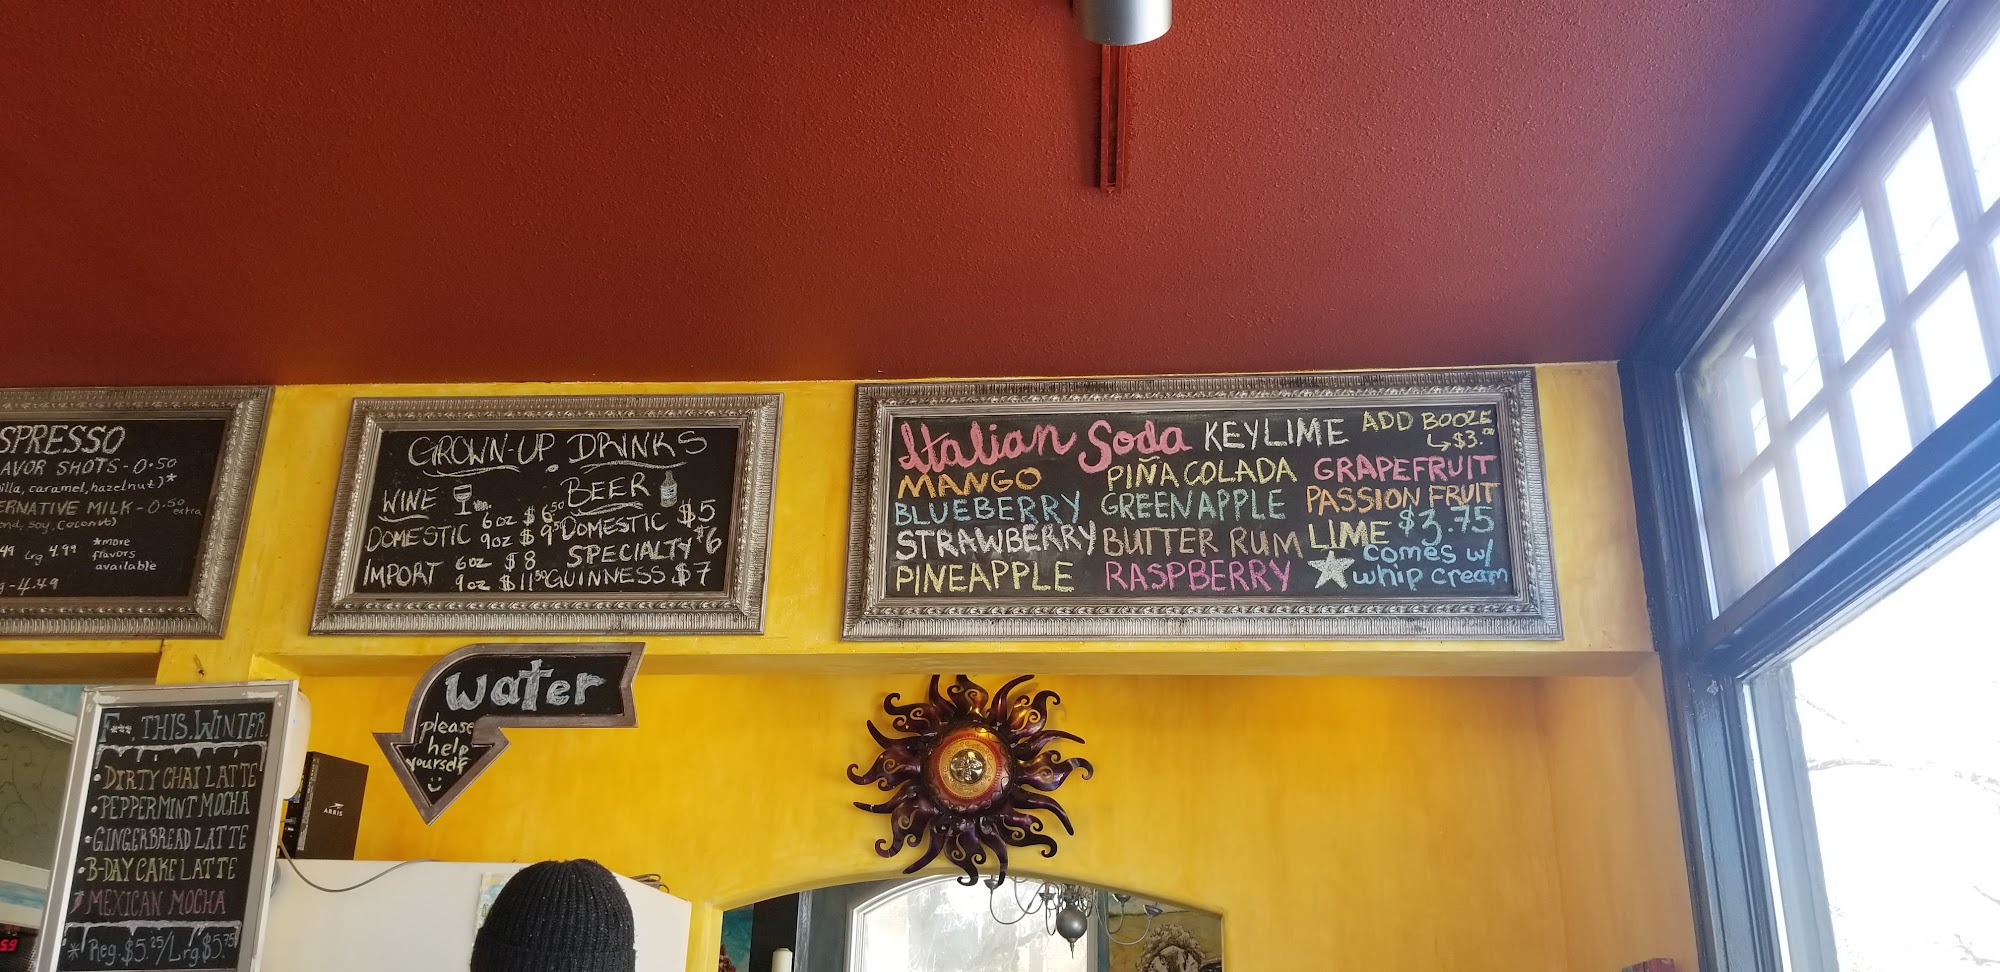 SPRESSO
AVOR SHOTS - 0.50
illa, caramel, hazelnut)*
ERNATIVE MILK - 0.50 extra
ond, Soy, Coconut)
49 Lrg 4.99
*more
flavors
available
g - 4.49
GROWN-UP DRINKS
WINE
DOMESTIC 6oz $6.50
9oz $9.50
IMPORT 6oz $8
9oz $11.50
BEER
DOMESTIC $5
SPECIALTY $6
GUINNESS $7
Italian Soda
MANGO
BLUEBERRY
STRAWBERRY
PINEAPPLE
KEYLIME
PIÑA COLADA
GREEN APPLE
BUTTER RUM
RASPBERRY
ADD BOOZE
↳ $3.00
GRAPEFRUIT
PASSION FRUIT
LIME $3.75
comes w/
whip cream
water
please
help
yourself
F***, THIS WINTER
• DIRTY CHAI LATTE
• PEPPERMINT MOCHA
• GINGERBREAD LATTE
• B-DAY CAKE LATTE
MEXICAN MOCHA
* Reg. $5.25/Lrg $5.75
ARRIS
59